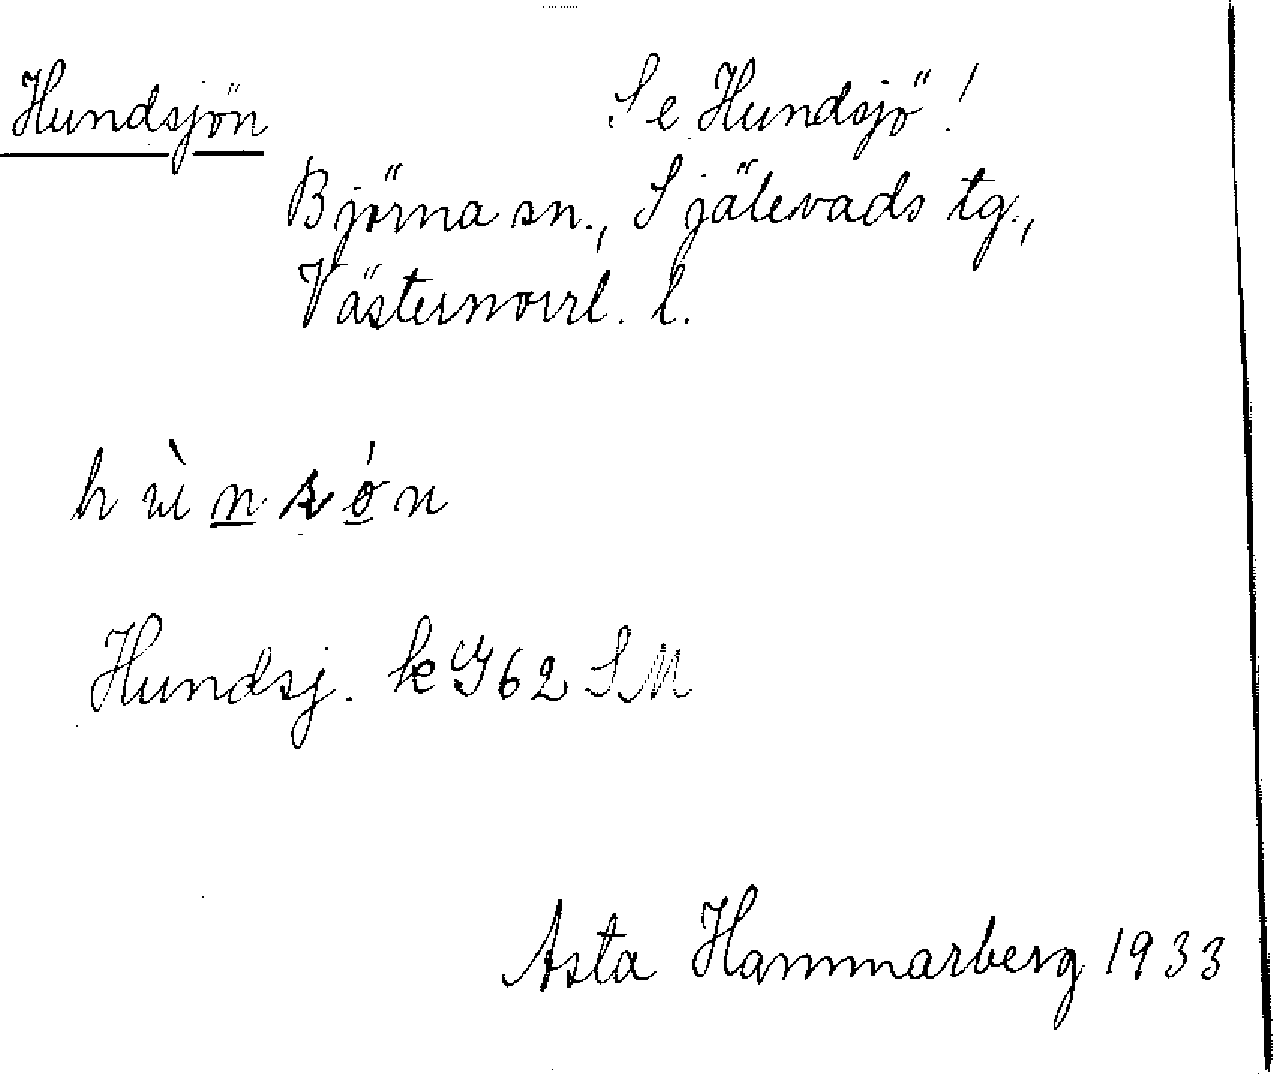 Hundsjön Se Hundsjö!
Björna sn., Själevads tg.,
Västernorrl. l.
Hundsj. k G62 SM
Asta Hammarberg 1933